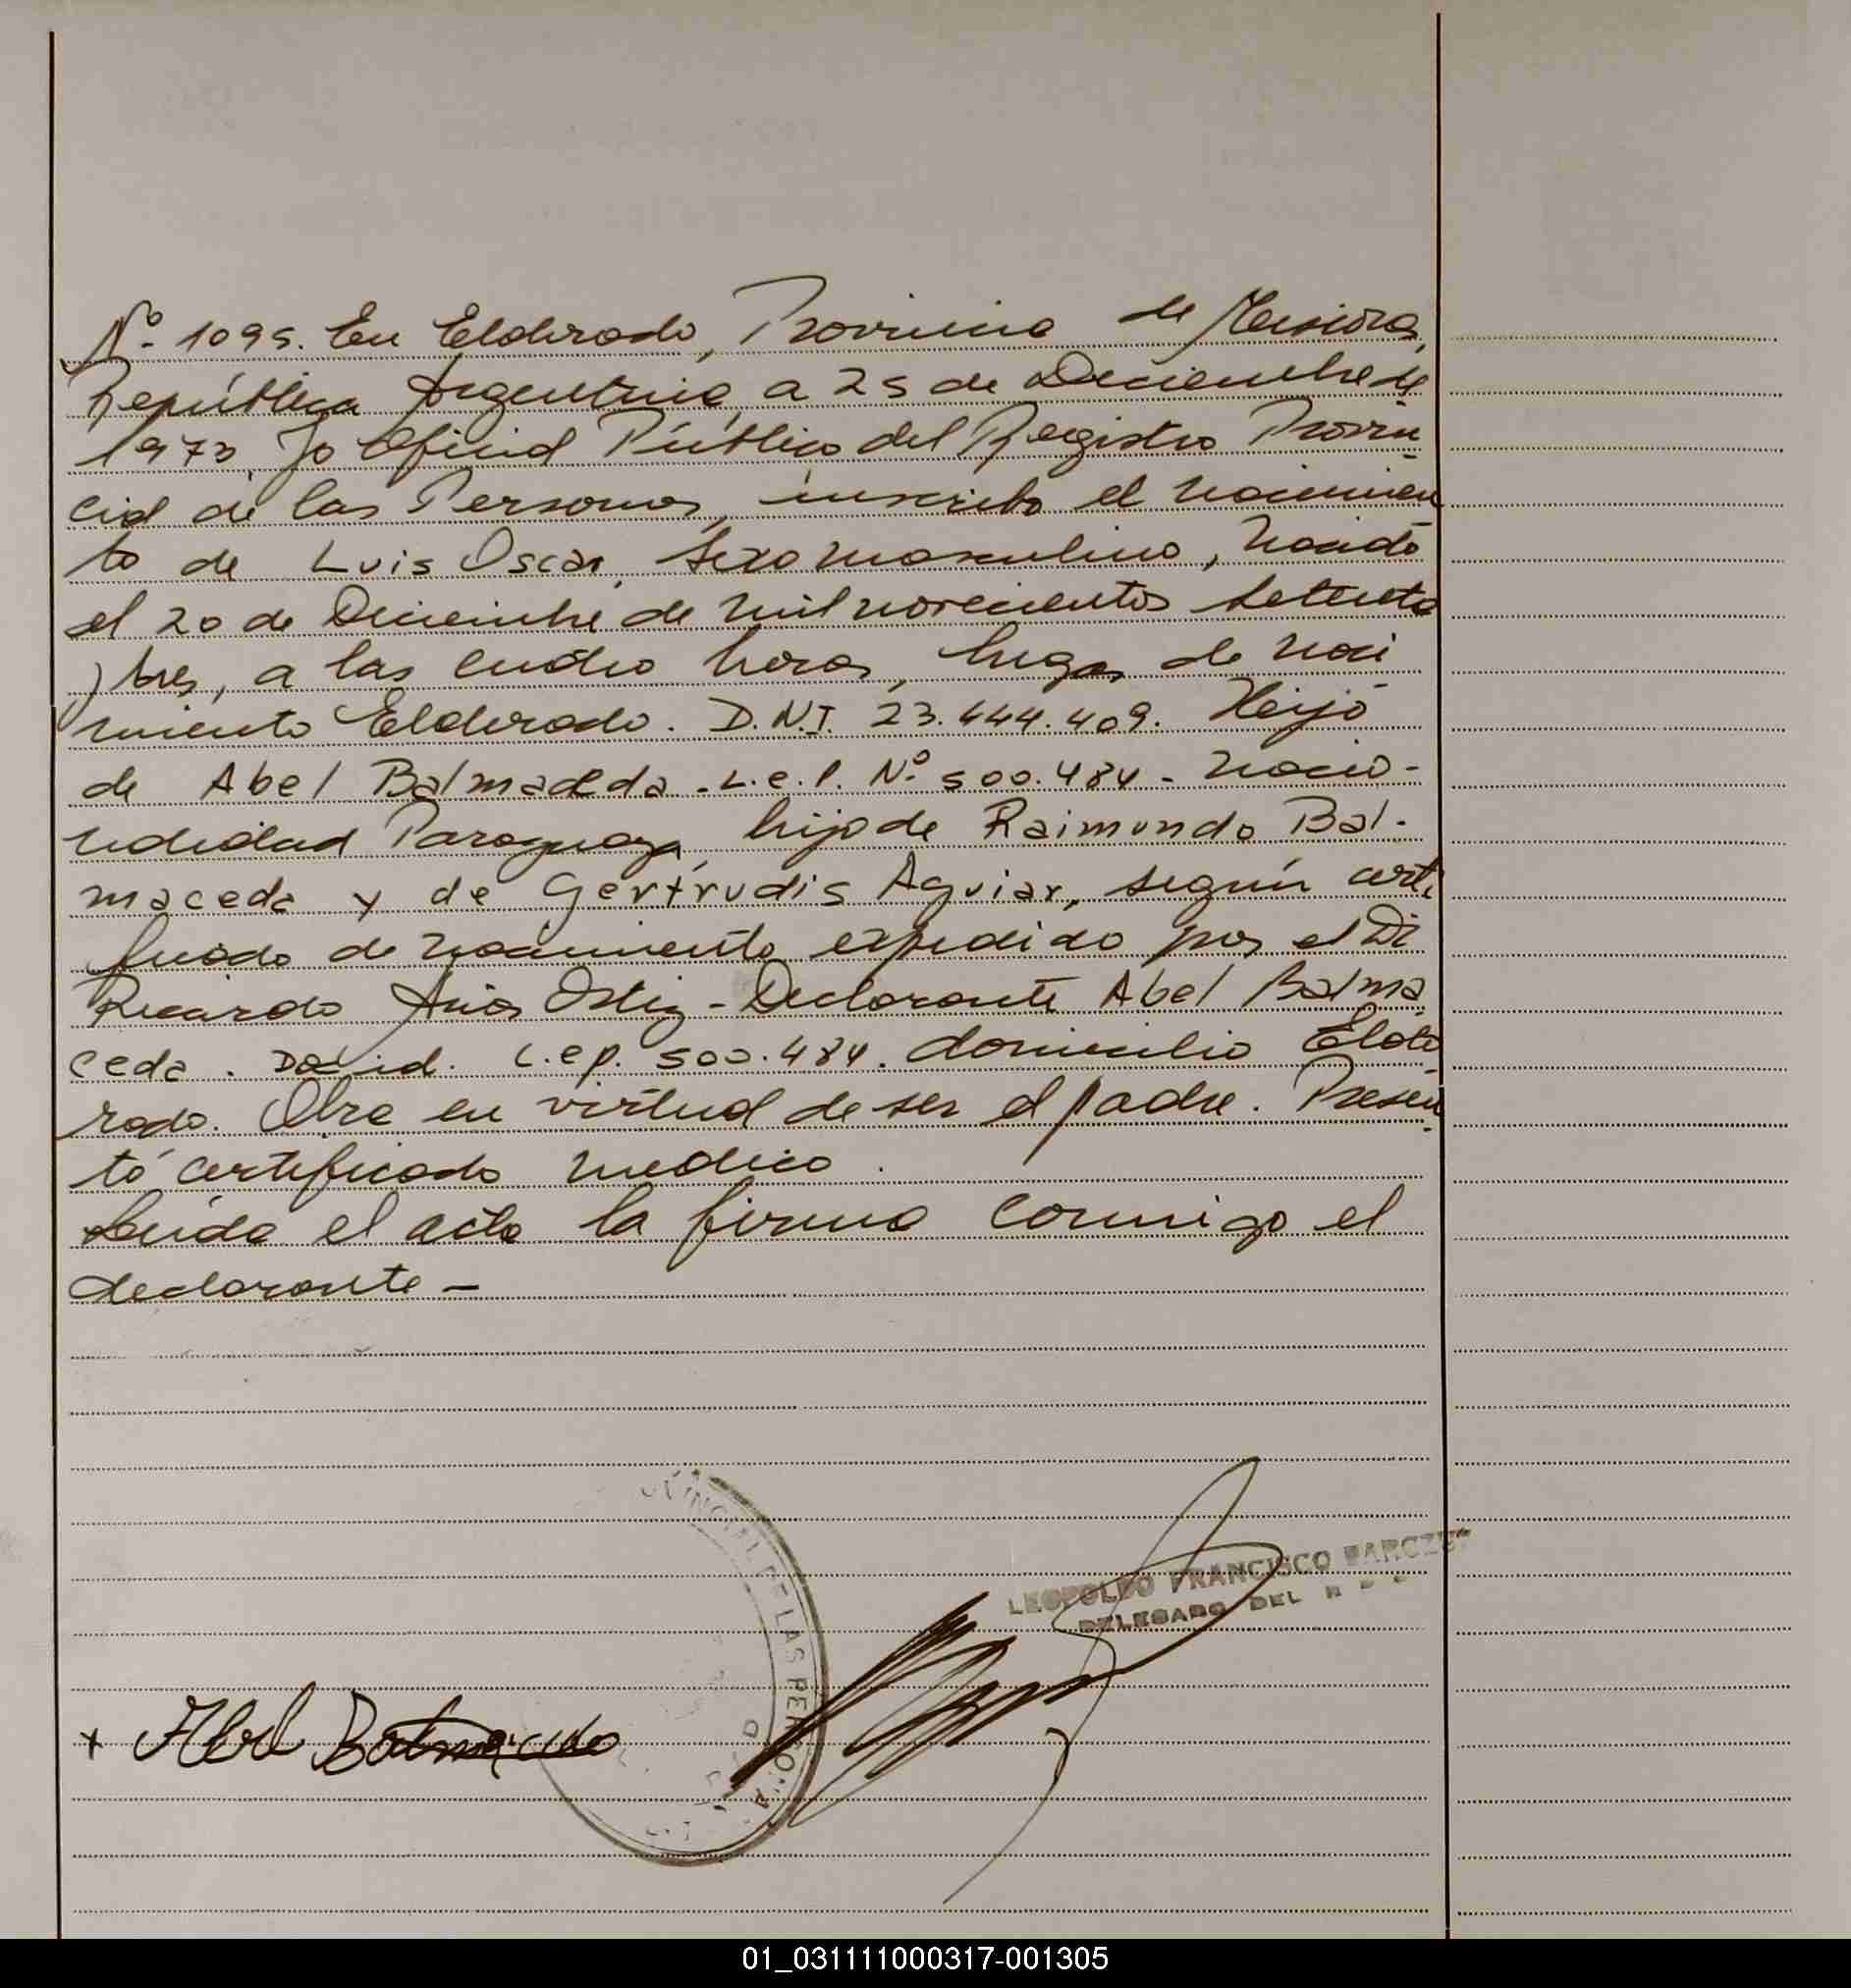 Nº 1095. En Eldorado, Provincia de Misiones,
República Argentina, a 25 de Diciembre de
1973, Yo Oficial Público del Registro Provin
cial de las Personas, inscribo el nacimien
to de Luis Oscar, sexo masculino, nacido
el 20 de Diciembre de mil novecientos setenta
y tres, a las cuatro horas, lugar de naci
miento Eldorado. D.N.I. 23.444.409. Hijo
de Abel Balmaceda - L.e.p. Nº 500.484 - nacio-
nalidad Paraguaya, hijo de Raimundo Bal-
maceda y de Gertrudis Aguiar, según certi
ficado de nacimiento expedido por el Dr
Ricardo Ortiz - Declarante Abel Balma
ceda. Doc. id. L.e.p. 500.484. domicilio Eldo
rado. Obra en virtud de ser el padre. Presen
tó certificado medico.
Leída el acta la firma conmigo el
declarante -
LEOPOLDO FRANCISCO
DELEGADO DEL R P
VINCIAL DE LAS PERSONAS
x Abel Balmaceda
01_031111000317-001305